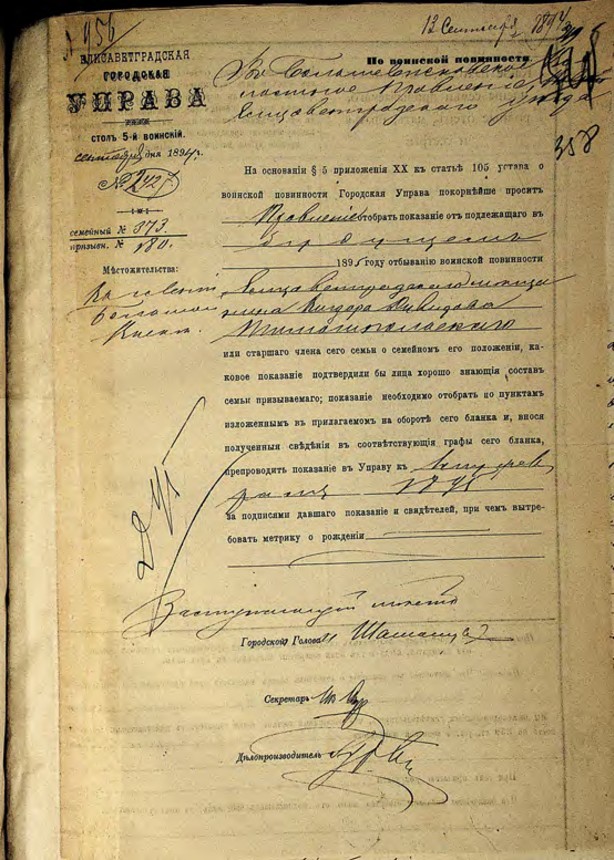 12 Сентября 1894
№ 956
ЕЛИСАВЕТГРАДСКАЯ
ГОРОДСКАЯ
УПРАВА
СТОЛЪ 5-й ВОИНСКІЙ.
сентября дня 1894 г.
№ 2427
По воинской повинности.
Елисаветградского уезда
358
семейный № 373.
призывн. № 180.
Мѣстожительства:
На основаніи § 5 приложенія XX къ статьѣ 105 устава о
воинской повинности Городская Управа покорнѣйше проситъ
Правленіе отобрать показаніе отъ подлежащаго въ
будущемъ
1895 году отбыванію воинской повинности
Елисаветградского мещанина
Давидова
или старшаго члена сего семьи о семейномъ его положеніи, ка-
ковое показаніе подтвердили бы лица хорошо знающія составъ
семьи призываемаго; показаніе необходимо отобрать по пунктамъ
изложеннымъ въ прилагаемомъ на оборотѣ сего бланка и, внося
полученныя свѣдѣнія въ соотвѣтствующія графы сего бланка,
препроводить показаніе въ Управу къ
1895
за подписями давшаго показаніе и свидѣтелей, при чемъ вытре-
бовать метрику о рожденіи
Заступающій место
Городской Голова
Секретарь
Дѣлопроизводитель